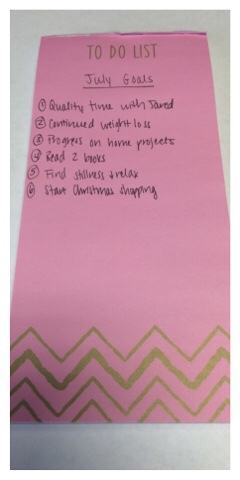 TO DO LIST
July Goals
① Quality time with Jared
② Continued weight loss
③ Progress on home projects
④ Read 2 books
⑤ Find stillness & relax
⑥ Start Christmas shopping